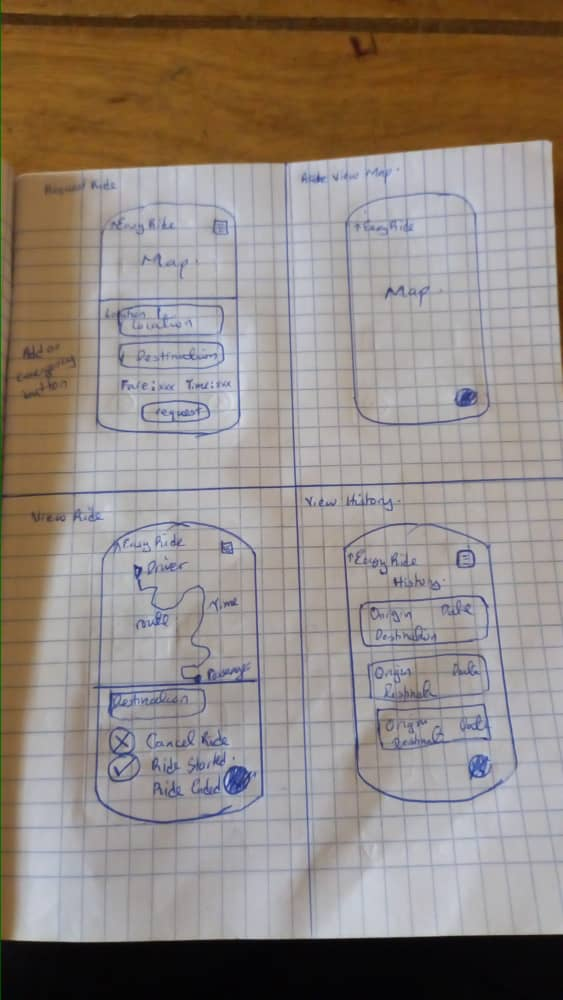 Request Ride
↑Easy Ride
Map.
Location
Location
Destination
Fare:xxx Time:xxx
request
Add an
emergency
button
View Map.
↑Easy Ride
Map.
View Ride
↑Easy Ride
Driver
Time
route
Passenger
Destination
Cancel Ride
Ride Started.
Ride Ended
View History.
↑Easy Ride
History.
Origin Date
Destination
Origin Date
Origin Date